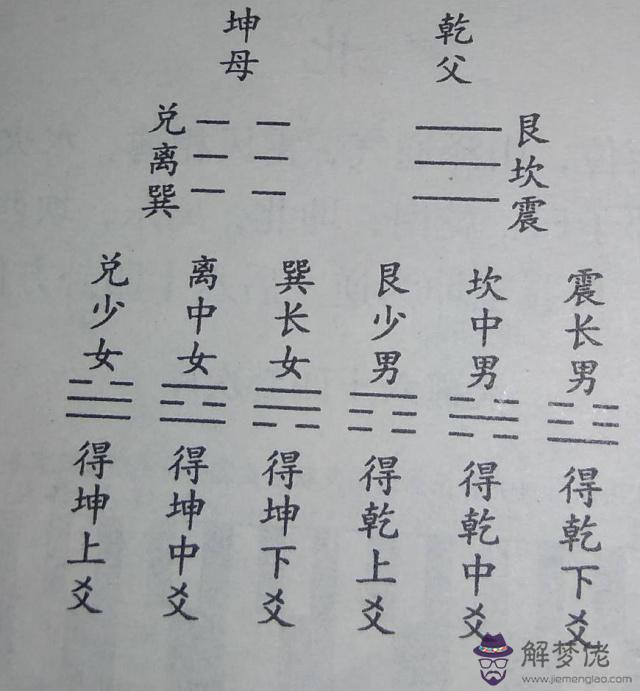 乾父
坤母
艮
坎
震
兑
离
巽
震长男
坎中男
艮少男
巽长女
离中女
兑少女
得乾下爻
得乾中爻
得乾上爻
得坤下爻
得坤中爻
得坤上爻
解梦佬
www.jiemenglao.com